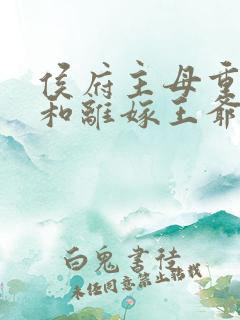 侯府主母重
和離嫁王爺
白鬼書徒
未经同意禁止转载